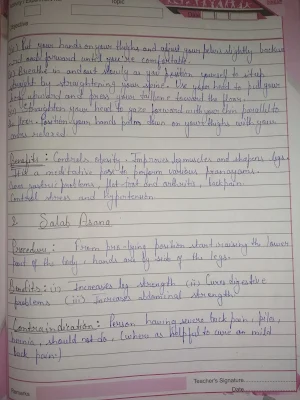 Topic
(v) Put your hands on your thighs and adjust your pelvis slightly backward
and forward until you're comfortable.
Breathe in and out slowly as you position yourself to sit up
straight by straightening your spine. Use your head to pull your
body upward and press your tailbone toward the floor.
Straighten your head to gaze forward with your chin parallel to
the floor. Position your hands palm down on your thighs with your
arms relaxed.
Benefits : Controls obesity. Improves leg muscles and shapens legs.
It is a meditative pose to perform various pranayama.
Cures various problems, flat-foot and arthritis, back pain.
Control stress and hypertension
2. Salab Asana
Procedure : From pro-lying position start raising the lower
part of the body, hands are by side of the legs.
Benefits : (i) Increases leg strength (ii) Cures digestive
problems (iii) Increases abdominal strength.
Contraindication : Person having severe back pain, piles,
hernia, should not do. (where as helpful to cure on mild
back pain.)
Teacher's Signature
Date